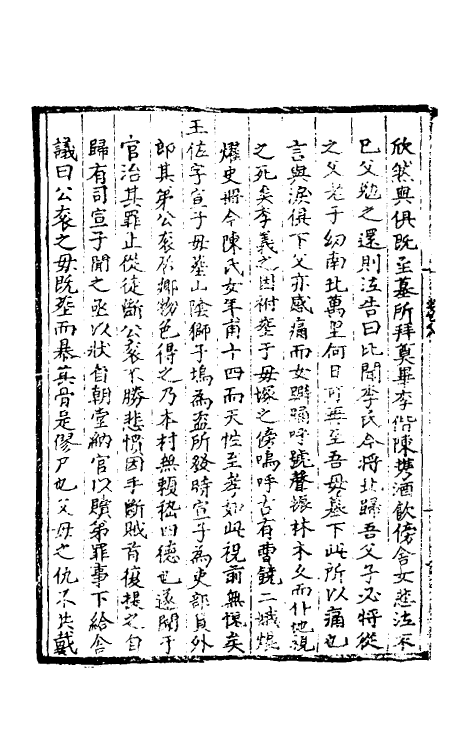 欣然與俱既至墓所拜奠畢李偕陳携酒飲傍舍女悲泣不
已父勉之還則泣告曰比聞李氏今將北歸吾父子必將從
之父老子幼南北萬里何日可再至吾母墓下此所以痛也
言與淚俱下父亦感痛而女躃踊呼號聲振林木久而仆地視
之死矣李義之因祔塟于母塚之傍嗚呼古有曹饒二娥焜
燿史冊今陳氏女年甫十四而天性至孝如此視前無愧矣
王佐字宣子母塟山陰獅子塢為盗所發時宣子為吏部員外
郎其弟公衮於鄉物色得之乃本村無賴嵇四德也遂聞于
官治其罪止從徒斷公衮不勝悲憤因手斷賊首復提之自
歸有司宣子聞之亟以狀白朝堂納官以贖弟罪事下給舍
議曰公衮之母既塟而暴其骨是僇尸也父母之仇不共戴